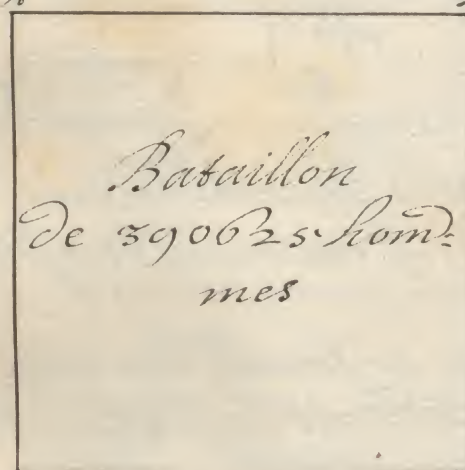 Bataillon
de 390625 hom=
mes